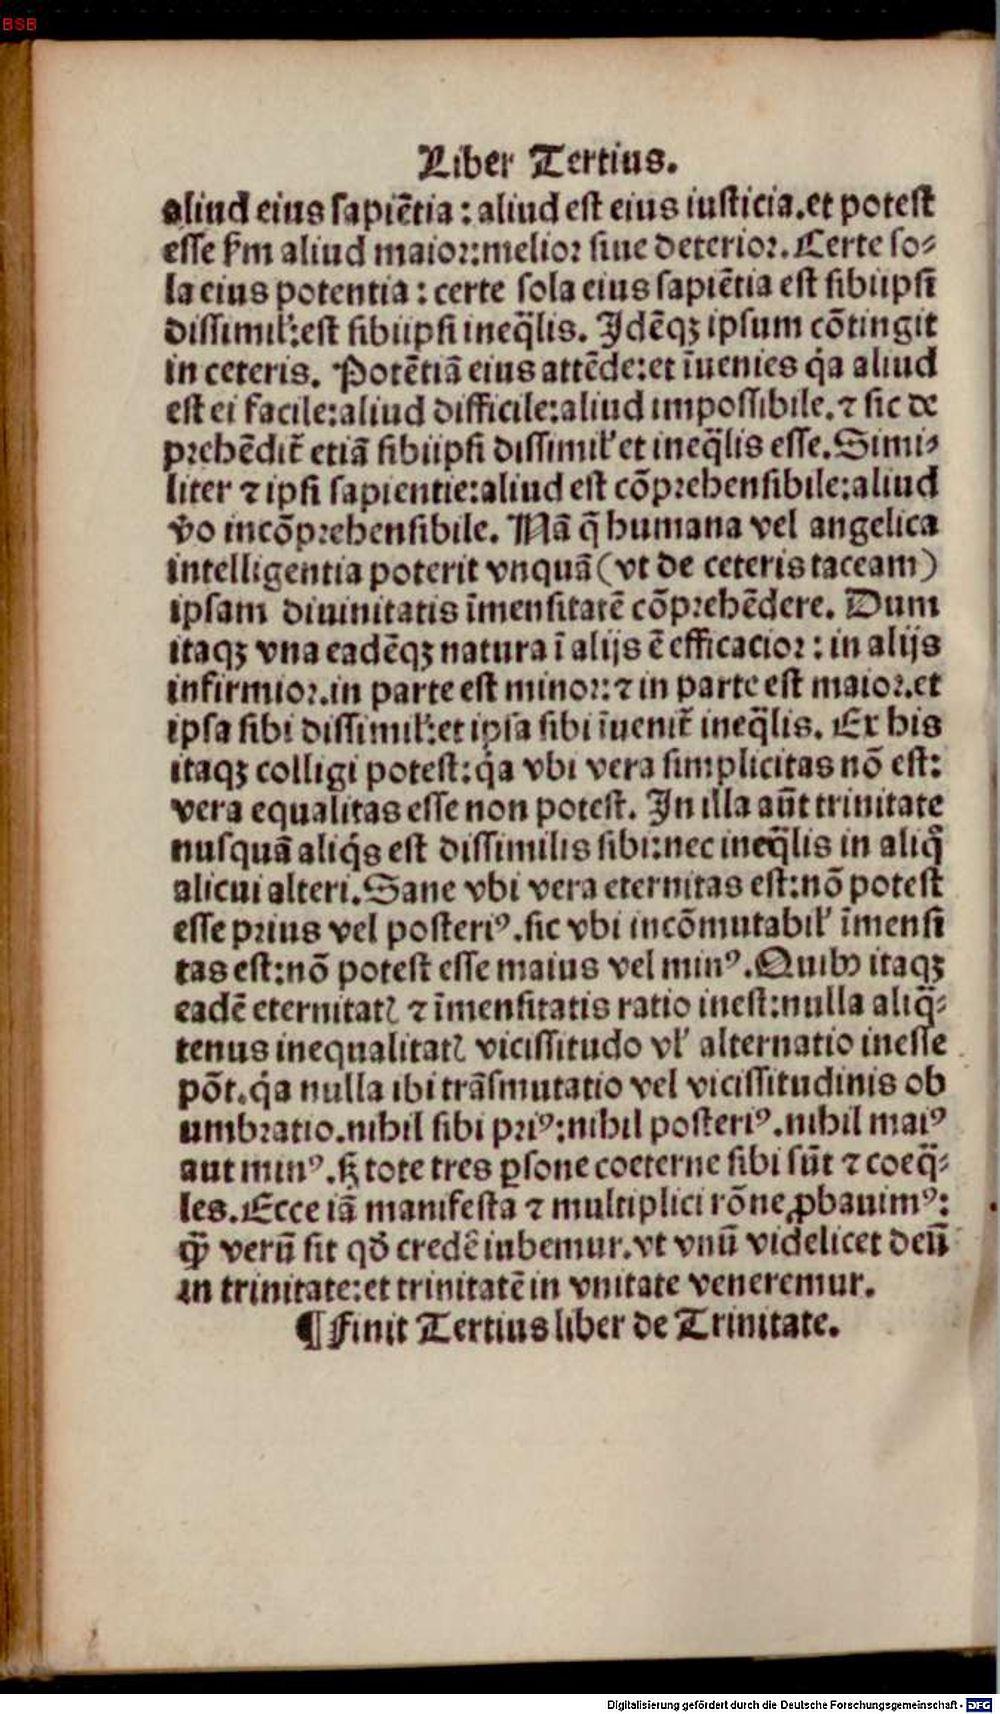 BSB
Liber Tertius.
aliud eius sapiẽtia : aliud est eius iusticia.et potest
esse ẜm aliud maior:melior siue deterior. Certe so⸗
la eius potentia : certe sola eius sapiẽtia est sibiipsi
dissimil̛:est sibiipsi ineq̃lis. Idẽqꝫ ipsum cõtingit
in ceteris. Potẽtiã eius attẽde:et ĩuenies q̇a aliud
est ei facile:aliud difficile:aliud impossibile.⁊ sic de
prehẽdit̃ etiã sibiipsi dissimil̛ et ineq̃lis esse.Simi⸗
liter ⁊ ipsi sapientie:aliud est cõprehensibile:aliud
v̊o incõprehensibile. Nã q̃ humana vel angelica
intelligentia poterit vnquã(vt de ceteris taceam)
ipsam diuinitatis ĩmensitatẽ cõprehẽdere. Dum
itaqꝫ vna eadẽqꝫ natura ĩ alijs ẽ efficacior : in alijs
infirmior.in parte est minor:⁊ in parte est maior.et
ipsa sibi dissimil̛:et ipsa sibi ĩuenit̃ ineq̃lis. Ex his
itaqꝫ colligi potest:q̇a vbi vera simplicitas nõ est:
vera equalitas esse non potest. In illa aũt trinitate
nusquã aliq̇s est dissimilis sibi:nec ineq̃lis in aliq̊
alicui alteri.Sane vbi vera eternitas est:nõ potest
esse prius vel posteriꝰ.sic vbi incõmutabil̛ ĩmensi
tas est:nõ potest esse maius vel minꝰ.Quibꝫ itaqꝫ
eadẽ eternitatꝭ ⁊ ĩmensitatis ratio inest:nulla aliq̃⸗
tenus inequalitatꝭ vicissitudo vl̛ alternatio inesse
põt.q̇a nulla ibi trãsmutatio vel vicissitudinis ob
umbratio.nihil sibi priꝰ:nihil posteriꝰ.nihil maiꝰ
aut minꝰ.sꝫ tote tres ꝑsone coeterne sibi sũt ⁊ coeq̃⸗
les.Ecce iã manifesta ⁊ multiplici rõne ꝓbauimꝰ:
ꝙ̃ verũ sit qđ credẽ iubemur.vt vnũ videlicet deũ
in trinitate:et trinitatẽ in vnitate veneremur.
¶Finit Tertius liber de Trinitate.
Digitalisierung gefördert durch die Deutsche Forschungsgemeinschaft - DFG